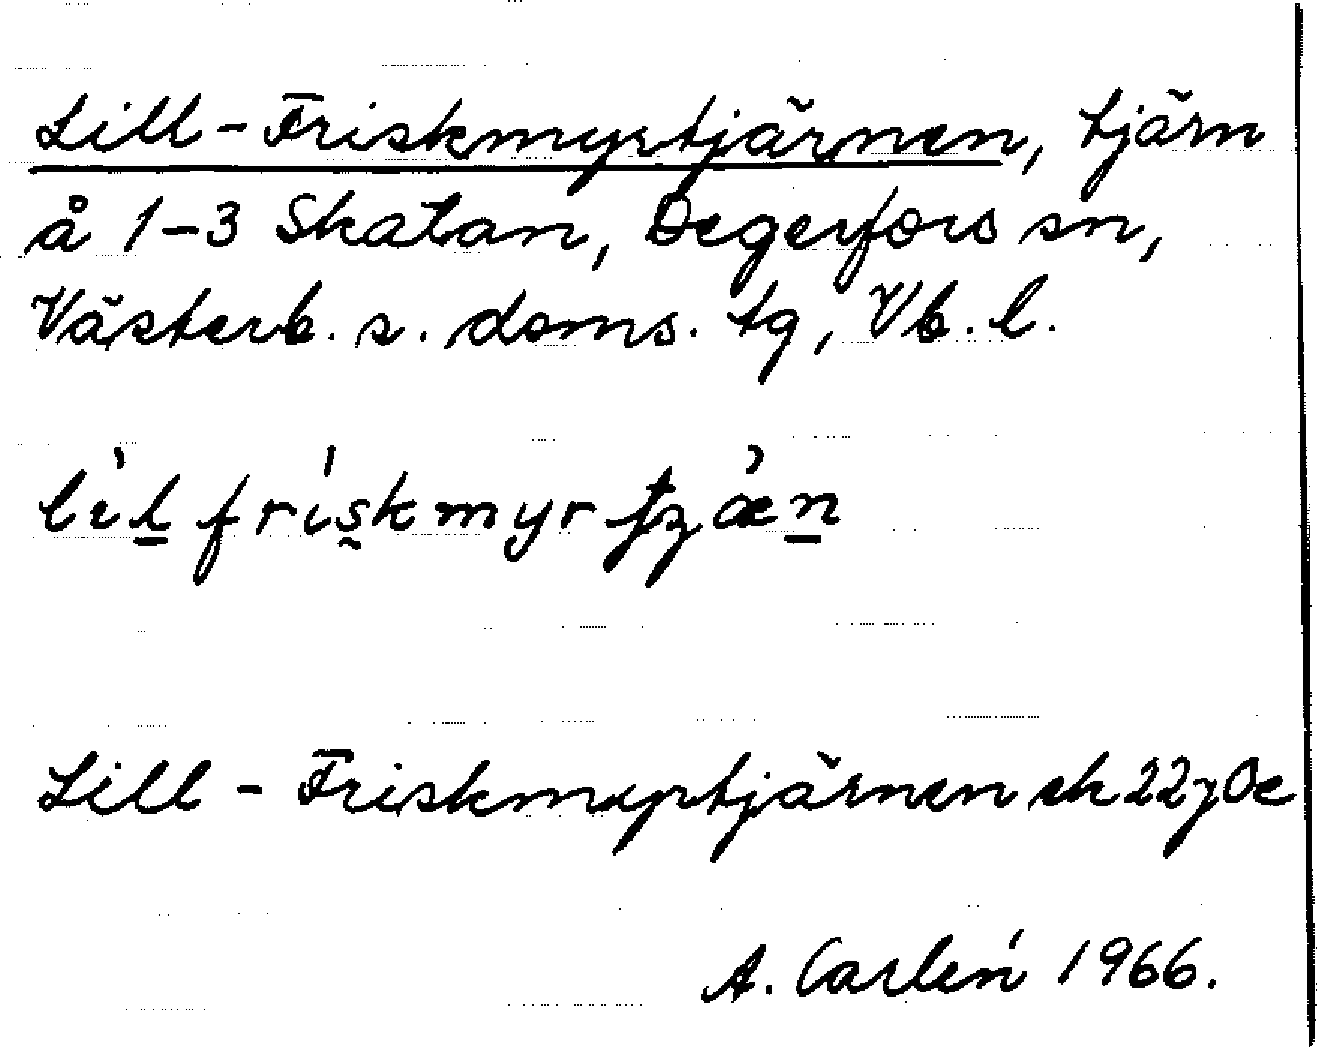 Lill-Friskmyrtjärnen, tjärn
å 1-3 Skatan, Degerfors sn,
Västerb. s. doms. tg, Vb. l.
friskmyr
Lill - Friskmyrtjärnen ek 22 j
A. Carlén 1966.